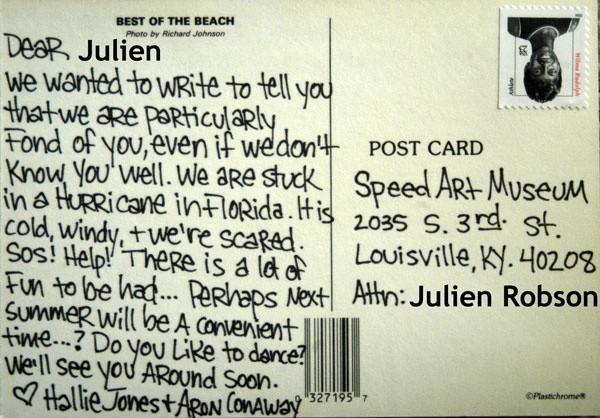 BEST OF THE BEACH
Photo by Richard Johnson
Dear Julien
We wanted to write to tell you
that we are particularly
fond of you, even if we don't
know you well. We are stuck
in a hurricane in Florida. It is
cold, windy, + we're scared.
SOS! Help! There is a lot of
fun to be had... Perhaps next
summer will be a convenient
time...? Do you like to dance?
We'll see you around soon.
♡ Hallie Jones + Aron Conaway
POST CARD
Speed Art Museum
2035 S. 3rd. St.
Louisville, KY. 40208
Attn: Julien Robson
Athlete
Wilma Rudolph
0 327195 7
©Plastichrome®